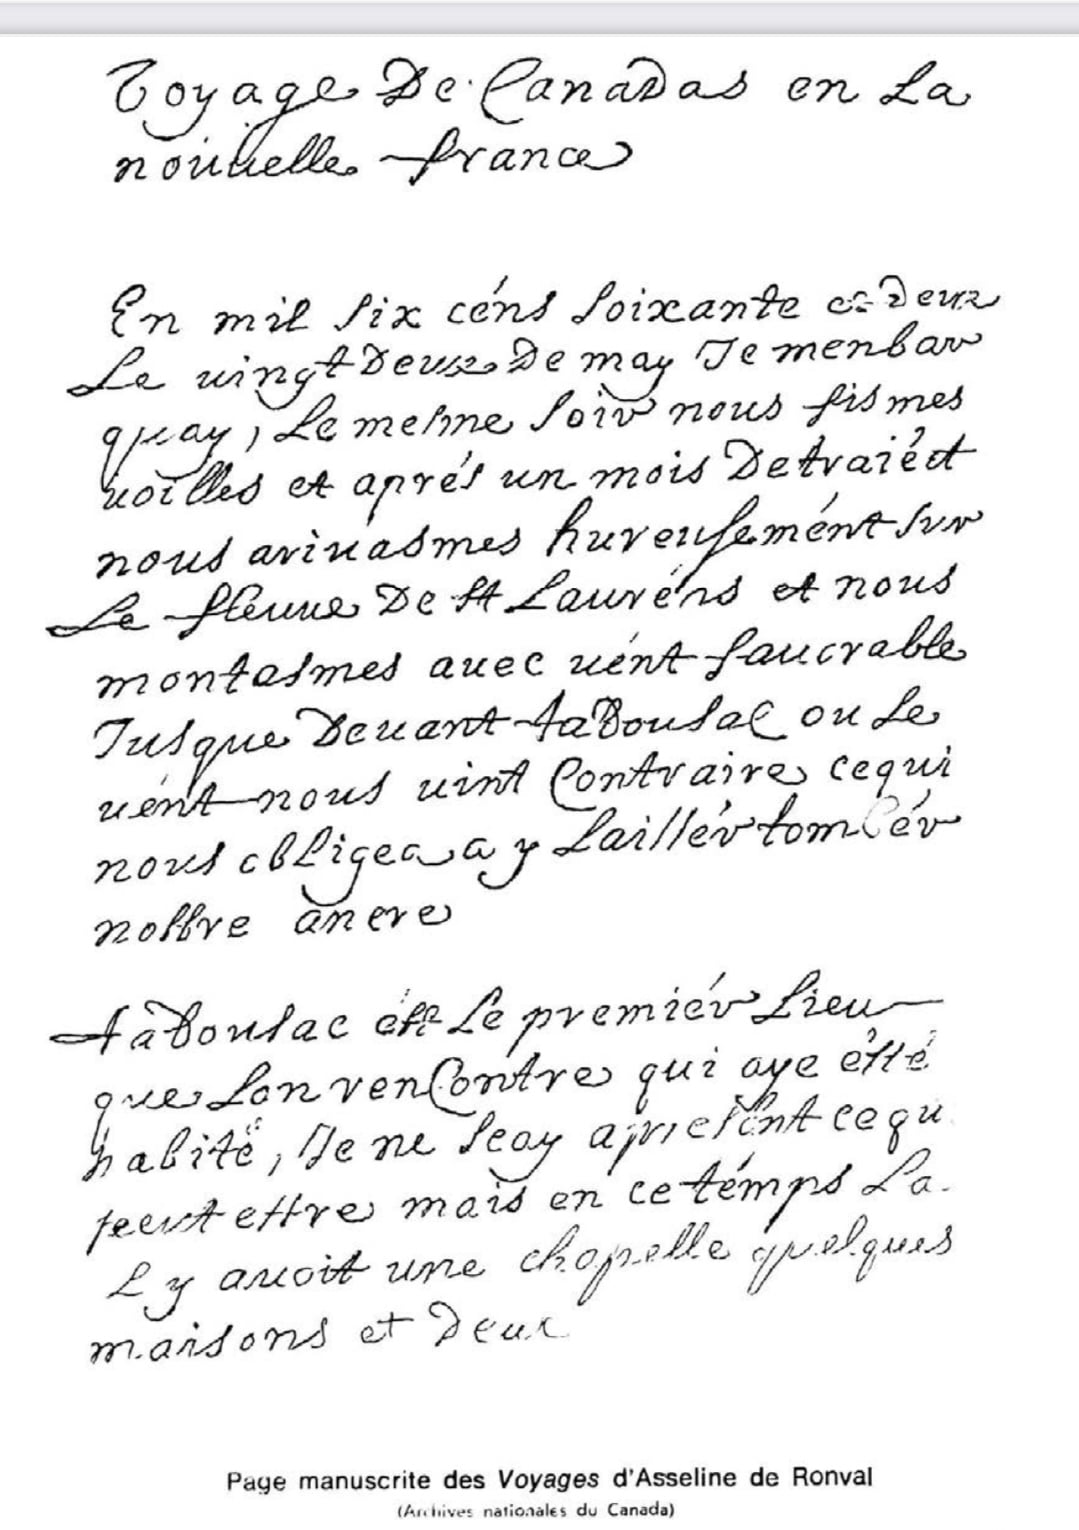 Voyage De Canadas en La
nouuelle france
En mil six céns soixante et deux
Le uingt deux De may Je menbar
quay, Le mesme soir nous fismes
uoilles et aprés un mois De traiéct
nous ariuasmes hureusemént sur
Le fleuue De st Lauréns et nous
montasmes auec uént fauorable
Jusque Deuant tadousac ou Le
uént nous uint Contraire ce qui
nous obligea a y Laissér tombér
nostre ancre
tadousac est Le premiér Lieu
que Lon renContre qui aye esté
habité, Je ne scay apresént ce qu
peut estre mais en ce témps La
L y auoit une chapelle quelques
maisons et Deux
Page manuscrite des Voyages d'Asseline de Ronval
(Archives nationales du Canada)